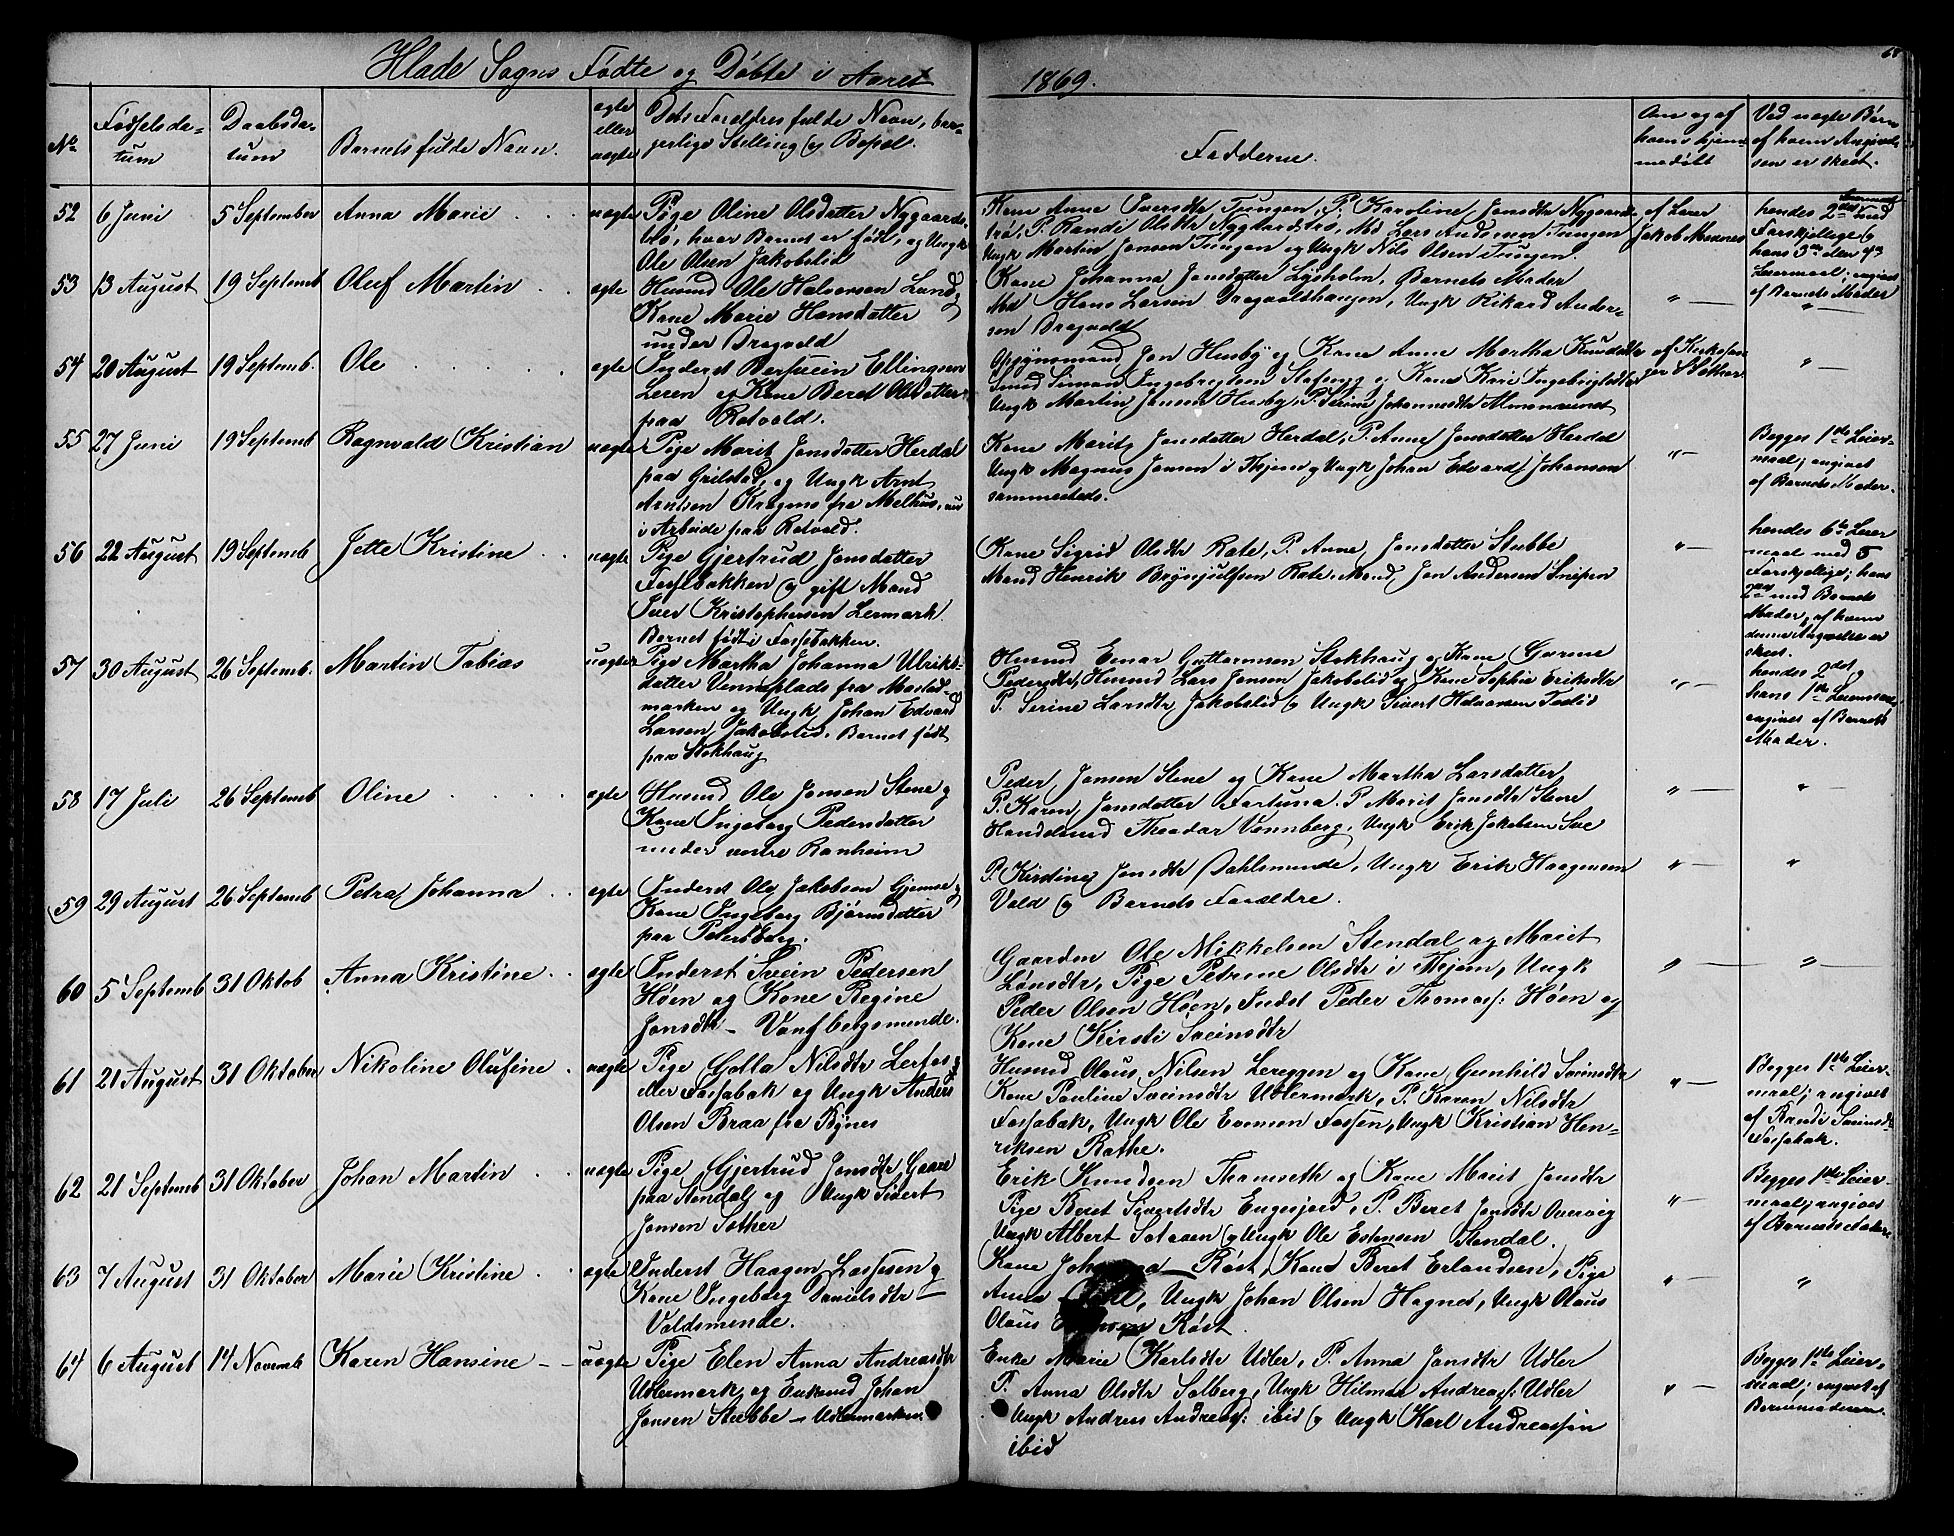 Hlade Sogns Fødte og Døbte i Aaret 1869.
68
No
Fødselsdatum
Daabsdatum
Barnets fulde Navn.
ægte eller uægte
Dets Forældres fulde Navn, borgerlige Stilling og Bopæl.
Fadderne.
Om og af hvem hjemmedøbt
Ved uægte Børn af hvem Angivelsen er skeet.
52 6 Juni 5 September Anna Marie uægte
Pige Oline Olsdatter Nygaards-
trø, hvor Barnet er født, og Ungk
Ole Olsen Jakobslid
Kone Anne Iversdtr Tungen, P. Karoline Jonsdtr Nygaards-
trø, P. Randi Olsdtr Nygaardstrø, Md Lars Andersen Tungen
Ungk Martin Jonsen Tungen og Ungk Nils Olsen Tungen.
af Lærer
Jakob Moxnes
hendes 2det med
Forskjellige og
hans 3die den
Leiermaal; angivet
af Barnets Moder
53 13 August 19 Septemb Oluf Martin ægte
Husmd Ole Halvorsen Lund og
Kone Marie Hansdatter
under Dragvold
Kone Johanna Jonsdatter Lysholm, Barnets Moder
Md Hans Larsen Dragvoldshaugen, Ungk Rikard Ander-
sen Dragvold
" —
" —
54 20 August 19 Septemb. Ole ægte
Inderst Bersvein Ellingsen
Leren og Kone Beret Olsdatter
paa Rotvold.
Opsynsmand Jon Husby og Kone Anne Martha Knudsdtr
Smed Simon Ingebrigtsen Stafseng og Kone Kari Ingebrigtsdtr
Ungk Martin Jonsen Husby, P. Serine Johannesdtr
af Kirkesan-
ger
" —
55 27 Juni 19 Septemb Ragnvald Kristian uægte
Pige Marit Jonsdatter Herdal
paa Grilstad, og Ungk Arnt
Arntsen Kregnes fra Melhus, nu
i Arbeide paa Rotvold.
Kone Marit Jonsdatter Herdal, P. Anne Jonsdatter Herdal
Ungk Magnus Jonsen i Thjem og Ungk Johan Edvard Johansen
sammesteds.
" —
Begges 1ste Leier-
maal; angivet
af Barnets Moder.
56 22 August 19 Septemb Jette Kristine uægte
Pige Gjertrud Jonsdatter
Fossebakken og gift Mand
Iver Kristophersen Lermark.
Barnet født i Fossebakken.
Kone Sigrid Olsdtr Rate, P. Anne Jonsdatter Stubbe
Mand Henrik Brynjulfsen Rate, Mand Jon Andersen
" —
hendes 6te Leier
maal med 5
Forskjellige; hans
2det med Barnets
Moder, af hvem
denne Angivelse er
skeet.
57 30 August 26 Septemb. Martin Tobias uægte
Pige Martha Johanna Ulriks-
datter Venneplads fra Mostad-
marken og Ungk Johan Edvard
Larsen Jakobslid. Barnet født
paa Stokhaug
Husmd Einar Guttormsen Stokhaug og Kone Gurine
Pedersdtr, Husmd Lars Jonsen Jakobslid og Kone Sophia Eriksdtr
P. Serine Larsdtr Jakobslid og Ungk Sivert Halvorsen Teslid
" —
hendes 2det og
hans 1ste Leiermaal
angivet af Barnets
Moder.
58 17 Juli 26 Septemb Oline ægte
Husmd Ole Jonsen Stene og
Kone Ingeborg Pedersdatter
under vestre Ranheim
Peder Jonsen Stene og Kone Martha Larsdatter
P. Karen Jonsdatter Fortuna. P Marit Jonsdtr Stene
Handelsmd Theodor Vennberg, Ungk Erik Jakobsen Sve
" —
" —
59 29 August 26 Septemb Petra Johanna ægte
Inderst Ole Jakobsen Gjemse og
Kone Ingeborg Bjørnsdatter
paa Petersborg.
P. Kirstine Jonsdtr Dahlsmunde, Ungk Erik Haagensen
Vold og Barnets Forældre.
" —
"
60 5 Septemb 31 Oktob Anna Kristine ægte
Inderst Svein Pedersen
Høen og Kone Regine
Jonsdtr — Vansbergsmende.
Gaardm Ole Mikkelsen Stendal og Marit
Lønsdtr, Pige Petrine Olsdtr i Thjem, Ungk
Peder Olsen Høen, Indst Peder Thomass: Høen og
Kone Kirsti Sveinsdtr
" —
" —
61 21 August 31 Oktober Nikoline Olufine uægte
Pige Golla Nilsdtr Lerfos
eller Fossebak og Ungk Anders
Olsen Braa fra Bynes
Husmd Olaus Nilsen Lereggen og Kone Gunhild Sveinsdtr
Kone Pauline Sveinsdtr Udlermark, P. Karen Nilsdtr
Fossebak, Ungk Ole Evensen Fossen, Ungk Kristian Hen-
riksen Rathe.
" —
Begges 1ste Leier-
maal; angivet
af Randi Sveinsdtr
Fossebak.
62 21 Septemb 31 Oktober Johan Martin uægte
Pige Gjertrud Jonsdtr Gaare
paa Stendal og Ungk Sivert
Jonsen Sother
Erik Knudsen Thamseth og Kone Marit Jonsdtr
Pige Beret Sivertsdtr Engesjord, P. Beret Jonsdtr Overvig
Ungk Albert Solaaen og Ungk Ole Estensen Stendal.
" —
Begges 1ste Leier-
maal; angivet
af Barnets Fader.
63 7 August 31 Oktober Marie Kristine ægte
Inderst Haagen Lassesen og
Kone Ingeborg Danielsdtr —
Voldsmende.
Kone Røst, Kone Beret Erlandsen, Pige
Anna Ungk Johan Olsen Hagnes, Ungk Olaus
Olaus Røst.
" —
"
64 6 August 14 Novemb Karen Hansine — uægte
Pige Elen Anna Andreasdtr
Udlermark og Enkemd Johan
Jonsen Stubbe — Udlermarken
Enke Marie Karlsdtr Udler, P. Anna Jonsdtr Udler
P. Anna Olsdtr Solberg, Ungk Hilmar Andreass: Udler
Ungk Andreas Andreass: ibid og Ungk Karl Andreassen
ibid
" —
Begges 1ste Leier-
maal; angivet af
Barnemoderen.